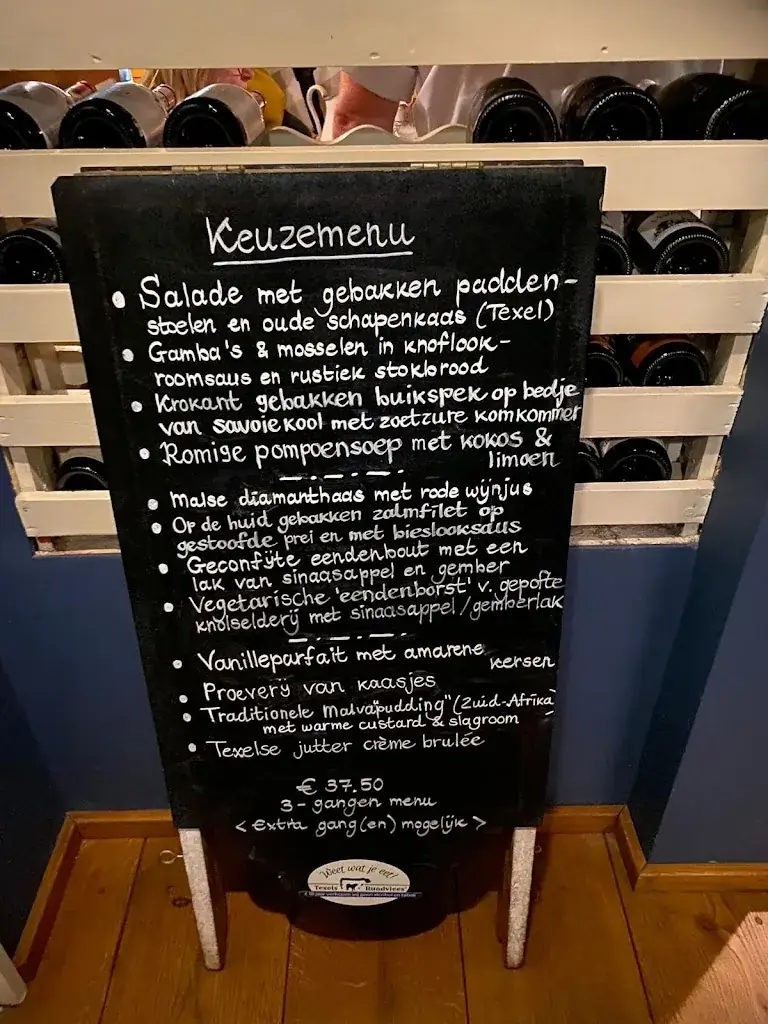 Keuzemenu
• Salade met gebakken padden-
stoelen en oude schapenkaas (Texel)
• Gamba's & mosselen in knoflook-
roomsaus en rustiek stokbrood
• Krokant gebakken buikspek op bedje
van savoiekool met zoetzure komkommer
• Romige pompoensoep met kokos &
limoen
• Malse diamanthaas met rode wijnjus
• Op de huid gebakken zalmfilet op
gestoofde prei en met bieslooksaus
• Geconfijte eendenbout met een
lak van sinaasappel en gember
• Vegetarische 'eendenborst' v. gepofte
knolselderij met sinaasappel/gemberlak
• Vanilleparfait met amarene
kersen
• Proeverij van kaasjes
• Traditionele "Malvapudding" (Zuid-Afrika)
met warme custard & slagroom
• Texelse jutter crème brulée
€ 37.50
3-gangen menu
< Extra gang(en) mogelijk >
Weet wat je eet!
Texels Rundvlees